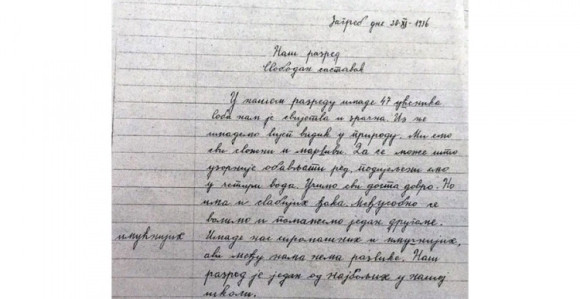 Загреб дне
Наш разред
Слободан саставак
У нашем разреду имаде 47 ученика
Соба нам је свијетла и зрачна. Из ње
имадемо лијеп видик у природу. Ми смо
сви сложни и марљиви. Да се може што
узорније обављати ред, подијељени смо
у четири вода. Учимо сви доста добро. Но
има и слабијих ђака. Међусобно се
волимо и помажемо један другоме.
имућнијих Имаде нас сиромашних и имућнијих,
али међу нама нема разлике. Наш
разред је један од најбољих у нашој
школи.